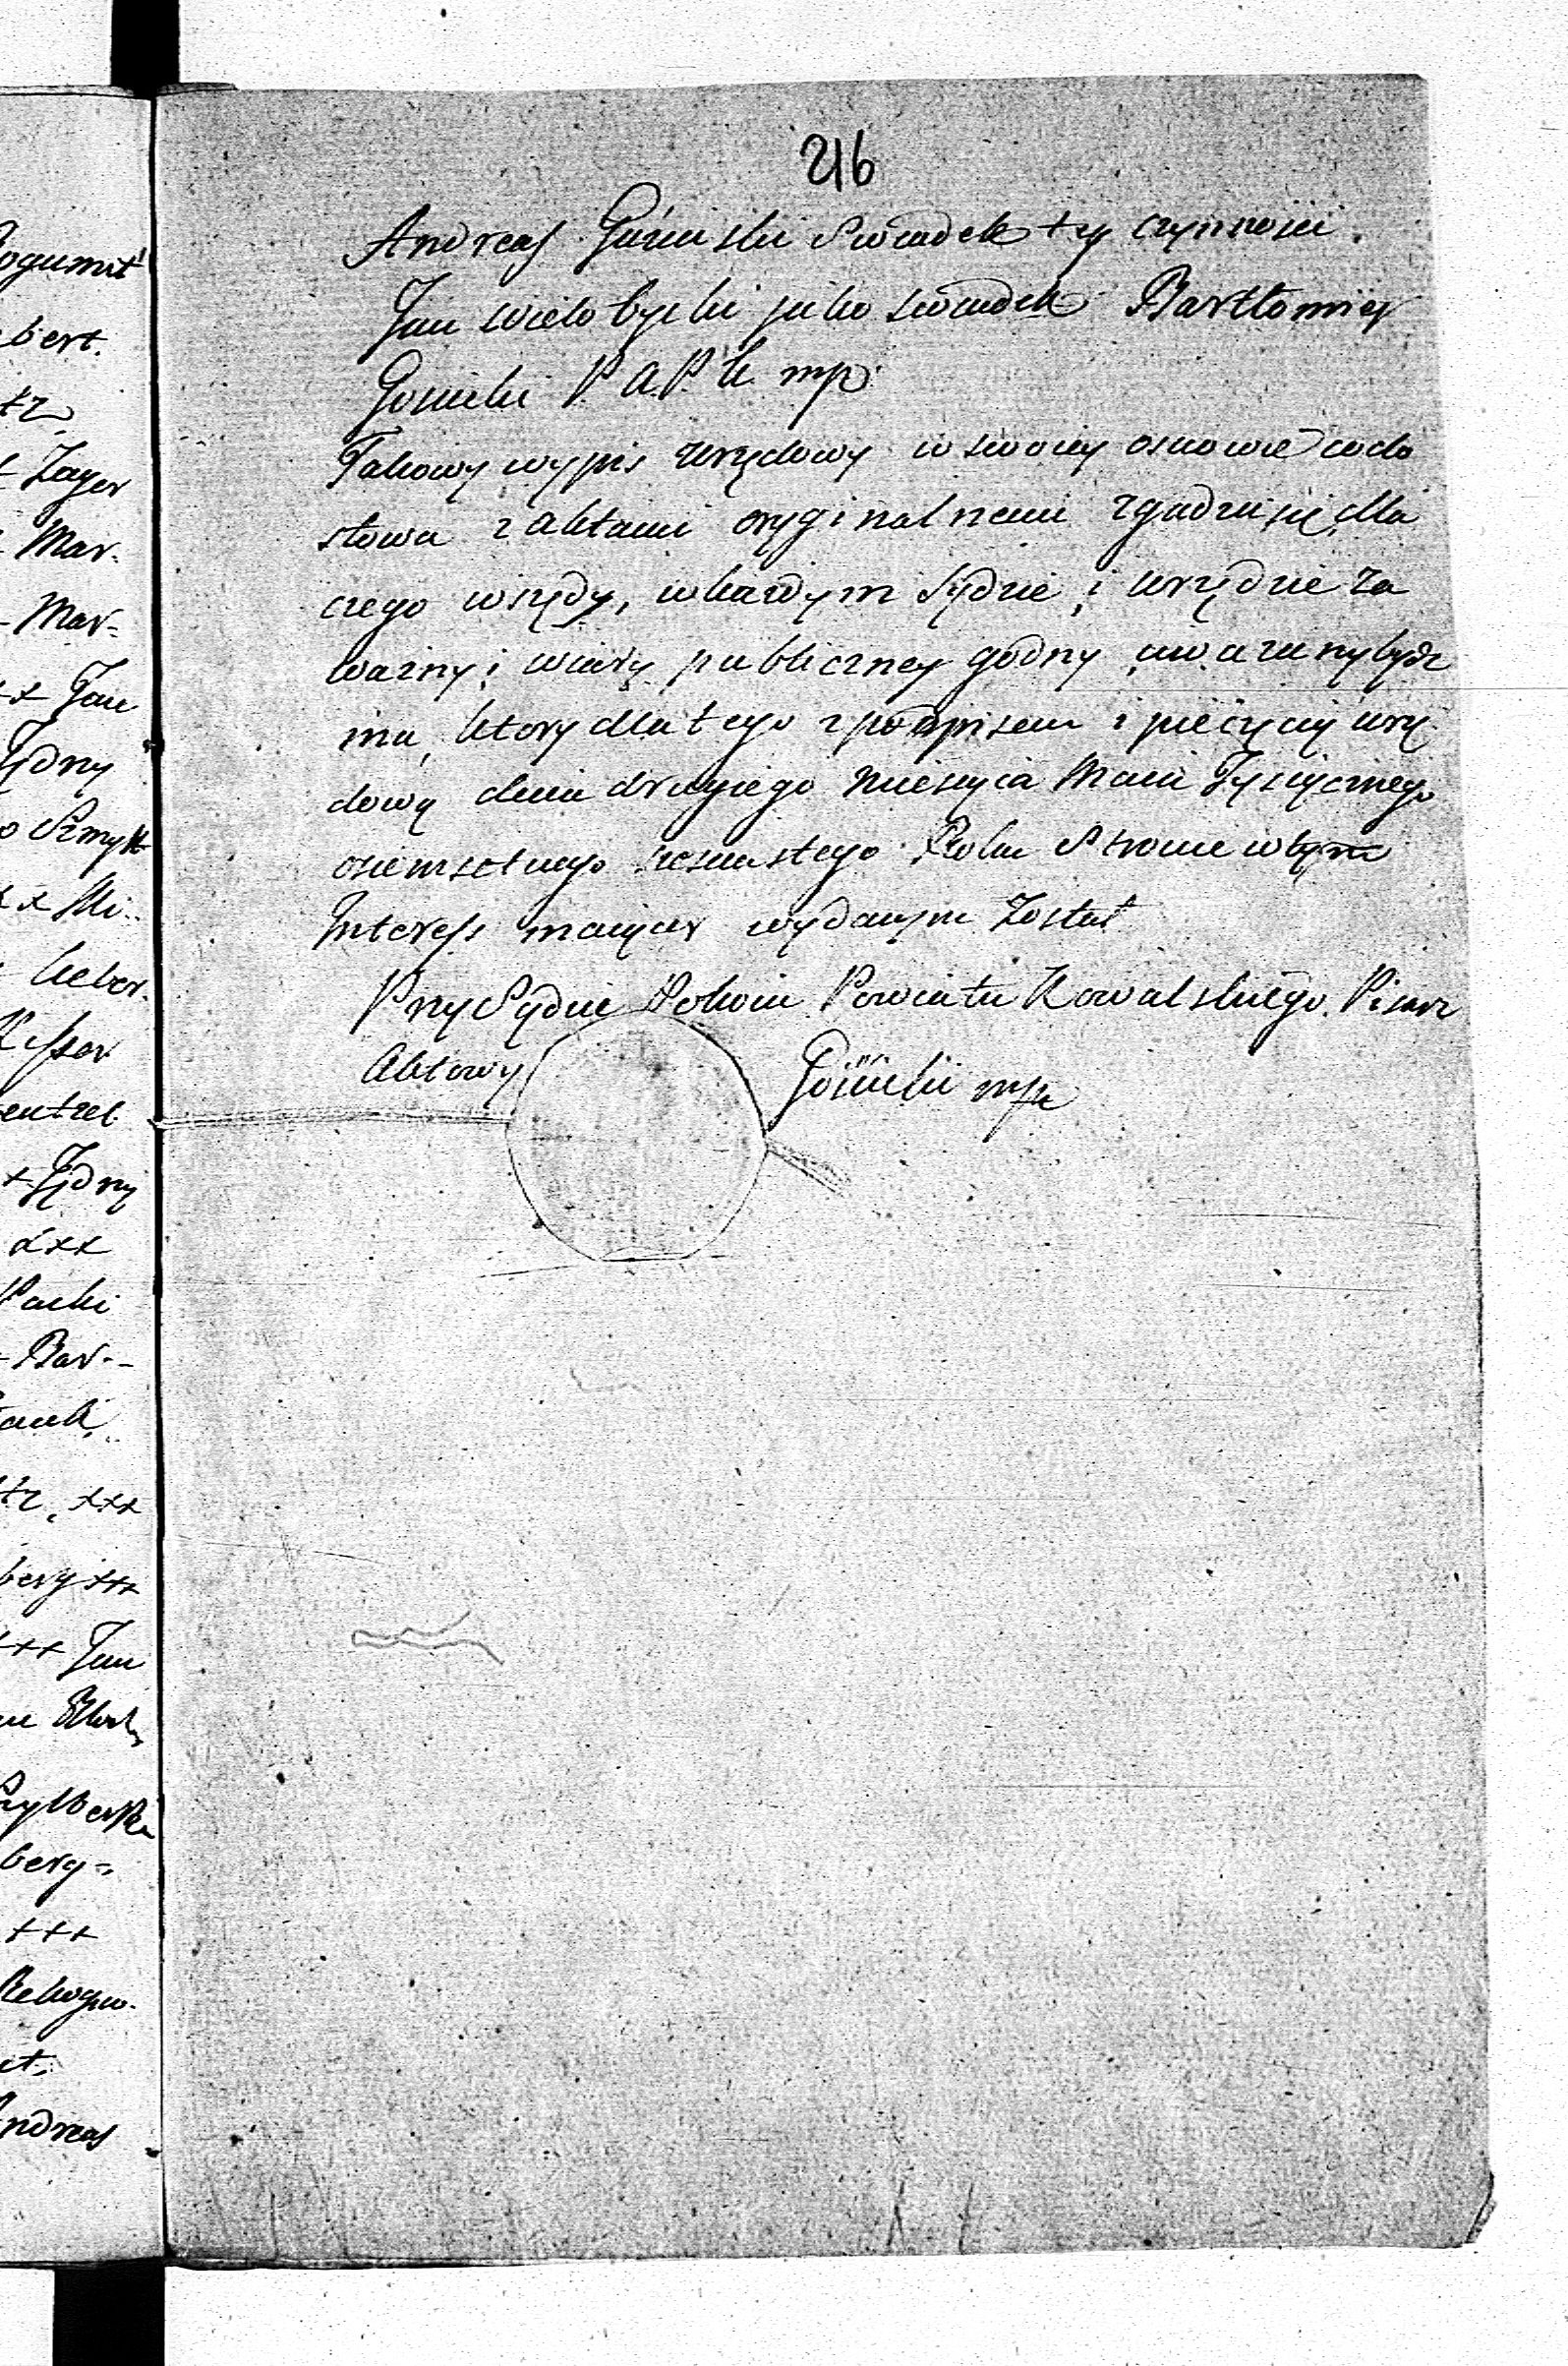 216
Andreas Góśniski Swiadek tey czynnosci.
Jan Wielobycki jako swiadek Bartłomiey
Gosnicki P A P K mp.
Takowy wypis urzędowy w swoiey osnowie co do
słowa z aktami oryginalnemi zgadza się, dla
czego wszędy, w każdym Sądzie i urzędzie za
ważny i wiary publiczney godny uważany bydz
ma, ktory dla tego z podpisem i pieczęcią urzę
dową dnia drugiego Miesiąca Maia Tysiącznego
osiemsetnego szesnastego Roku Stronie w tym
Interess maiącey wydanym Został
Przy Sądzie Pokoiu Powiatu Kowalskiego Pisarz
Aktowy Gośnicki mp
ogumił
bert.
tz
Zager
Mar-
Mar-
xx Jan
Jędny
o Szmytt
xx Mi-
Ueber-
entzel
+ Jędny
xxx
Packi
Bar--
tz, xxx
berg xxx
xxx Jan
berg-
+++
et.
Andreas